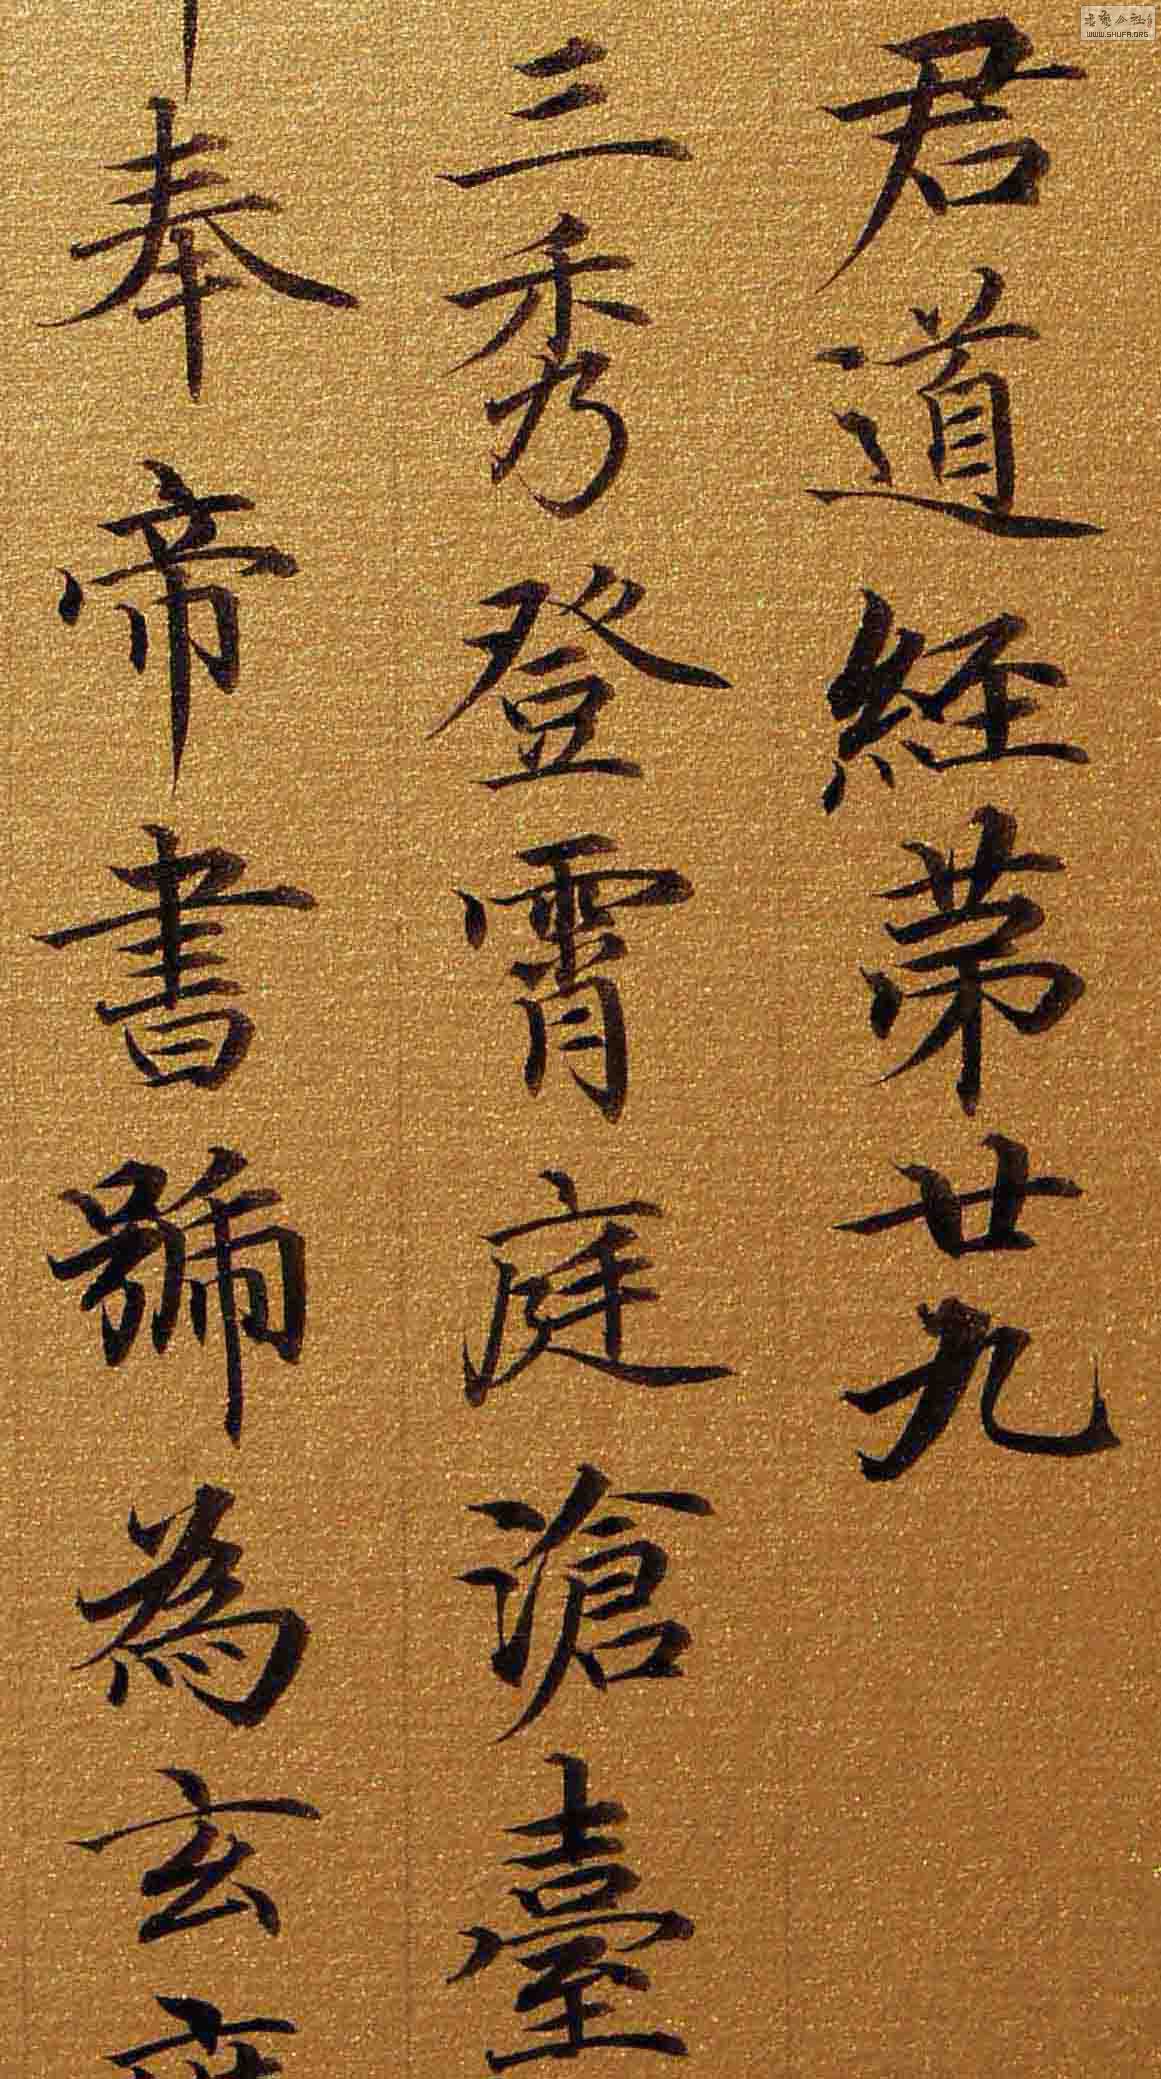 君道經第廿九
三秀登霄庭滄臺
奉帝書號為玄
WWW.SHUFA.ORG